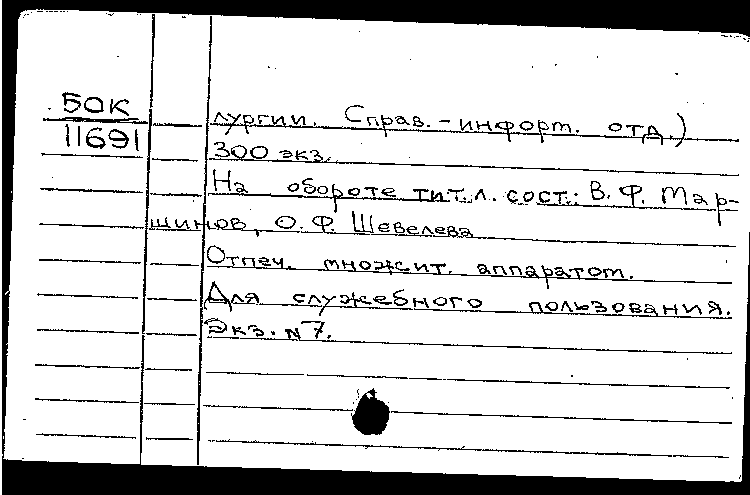 БОК
11691
лургии. Справ.-информ. отд.)
300 экз.
На обороте тит.л. сост.: В. Ф. Мар-
шинов, О. Ф. Шевелева
Отпеч. множит. аппаратом.
Для служебного пользования.
Экз. N 7.